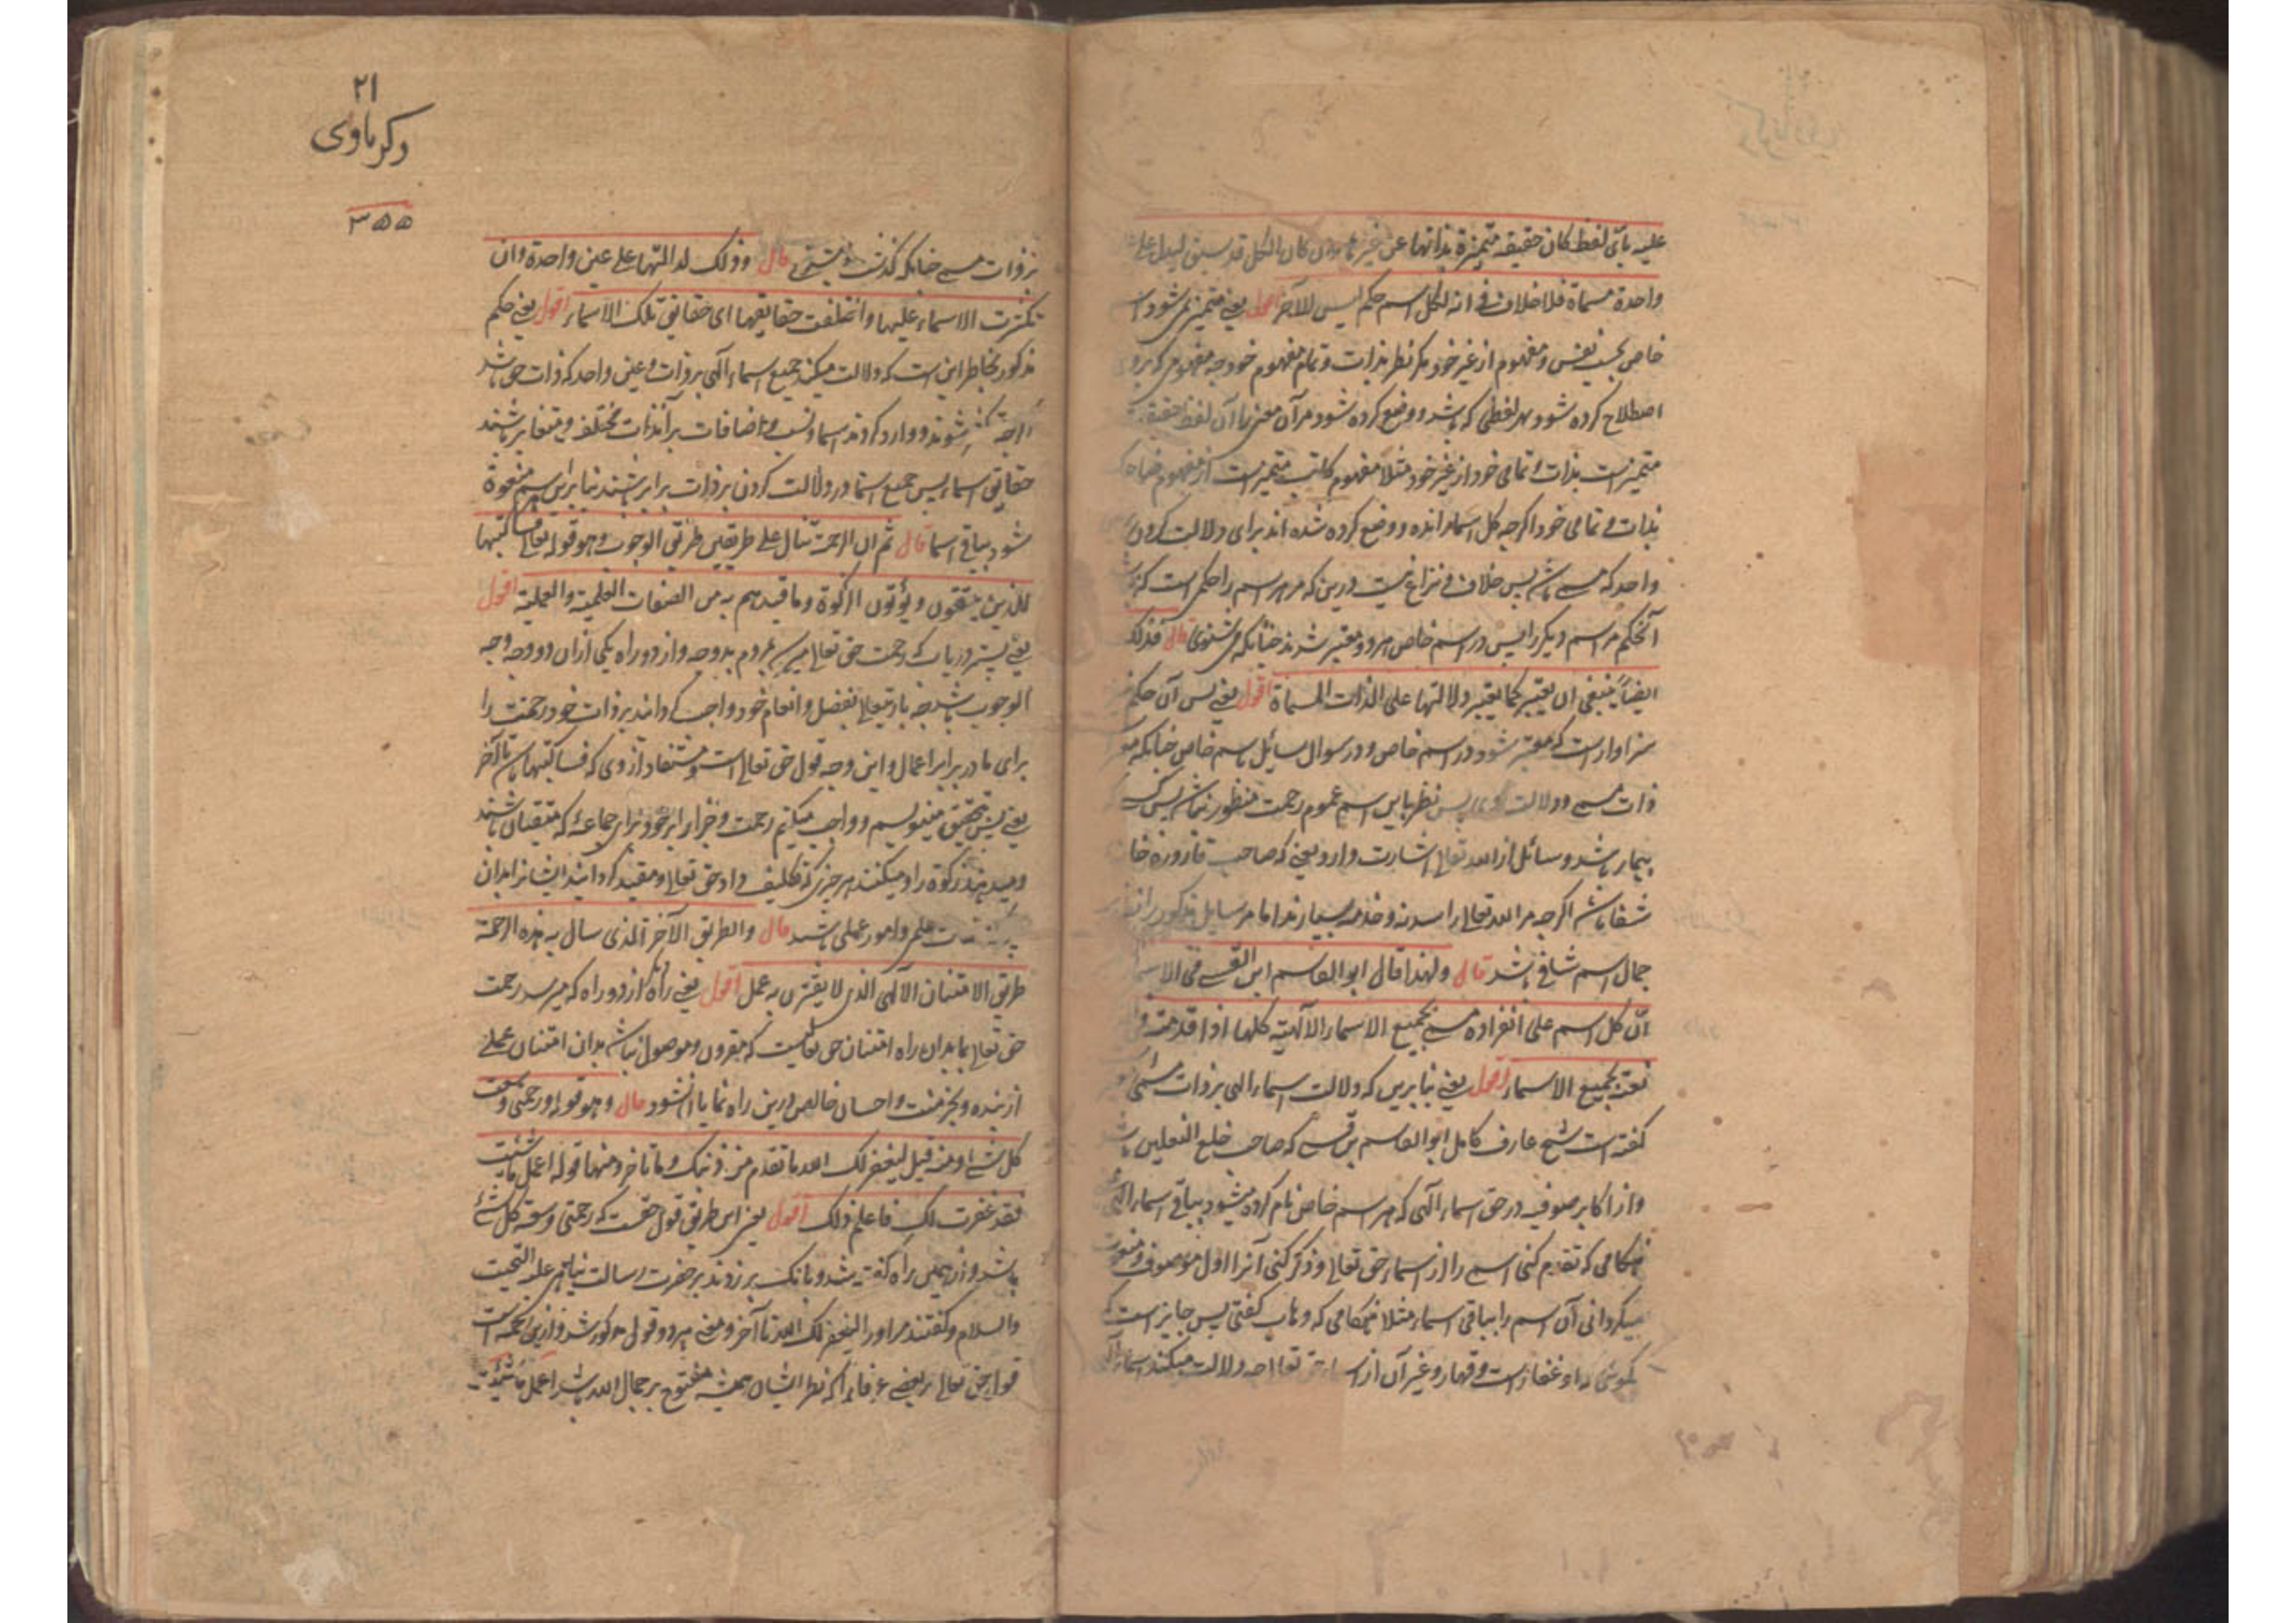 علیه بأیّ لفظ کان حقیقة متمیزة بذاتها عن غیرها وان کان الکل قد سبق لیدل علی
واحدة مسماة فلا خلاف فی انه لکل اسم حکم لیس للآخر اقول یعنی متمیز می شود
خاص بحسب نفس و مفهوم از غیر خود مکر نظر بذات و تمام مفهوم خود چه مفهومی که برو
اصطلاح کرده شود بهر لفظی که باشد و وضع کرده شود مر آن معنی با آن لفظ حقیقة
متمیز است بذات و تمامی خود از غیر خود مثلا مفهوم کاتب متمیز است از مفهوم ضاحک
بذات و تمامی خود اکرچه کل اسما رانده و وضع کرده شده اند برای دلالت کردن
واحد که مسمی باشد پس خلاف و نزاع نیست درین که مر هر اسم را حکمی است که نباشد
آنحکم مر اسم دیکر را پس در اسم خاص هر دو معتبر شدند چنانکه می شنوی قال فذلک
ایضاً ینبغی ان یعتبر کما یعتبر دلالتها علی الذات المسماة اقول یعنی پس آن حکم نیز
سزاوار است که معتبر شود در اسم خاص و در سوال سایل باسم خاص چنانکه معتبر
ذات مسمی و دلالت پس نظر باین اسم عموم رحمت منظور نباشد پس کسی
بیمار باشد و سائل از الله تعالی اشارت دارد یعنی که صاحب قاروره خا
شفا باشد اکرچه مر الله تعالی را سدنه و خدمه بسیارند اما مر سایل مذکور را نظر
جمال اسم شافی باشد قال ولهذا قال ابو القاسم ابن القسی فی الاسماء
انّ کل اسم علی انفراده مسمی بجمیع الاسماء الالهیة کلها اذا قدمته
نعته بجمیع الاسماء اقول یعنی بنابرین که دلالت اسماء الهی بر ذات مسمی
کفته است شیخ عارف کامل ابو القاسم بن قسی که صاحب خلع النعلین باشد
و از اکابر صوفیه در حق اسماء الهی که هر اسم خاص نام کرده میشود بباقی اسماء الهی
هنکامی که تقدیم کنی اسمی را از اسماء حق تعالی و ذکر کنی آنرا اول موصوف و منعوت
میکردانی آن اسم را بباقی اسماء مثلا هنکامی که وهاب کفتی پس جایز است که
بکوئی که او غفار است و قهار و غیر آن از اسماء حق تعالی چه دلالت میکند اسماء الهی
۲۱
ذکریاوی
۳۵۵
بر ذات مسمی چنانکه کذشت قال وذلک لدلالتها علی عین واحدة وان
تکثرت الاسماء علیها واختلفت حقایقها ای حقایق تلک الاسماء اقول یعنی حکم
مذکور بخاطر این است که دلالت میکند جمیع اسماء الهی بر ذات و عین واحد که ذات حق باشد
اکرچه متکثر شوند و وارد کردند اسما و نسب و اضافات بر آنذات مختلف و متغایر باشند
حقایق اسماء پس جمیع اسما در دلالت کردن بر ذات برابر باشند بنابراین هر اسم منعوت
شود بباقی اسما قال ثم ان الرحمة تنال علی طریقین طریق الوجوب وهو قوله تعالی فساکتبها
للذین یتقون ویؤتون الزکوة وما قیدهم به من الصفات العلمیة والعملیة اقول
یعنی پستر دریاب که رحمت حق تعالی میرسد بمردم بدو وجه و از دو راه یکی ازان دو وجه وجه
الوجوب باشد چه باریتعالی بفضل و انعام خود واجب کردانید بر ذات خود رحمت را
برای ما در برابر اعمال و این وجه قول حق تعالی است و مستفاد از وی که فساکتبها باشد تا آخر
یعنی پس بتحقیق مینویسم و واجب میکنم رحمت و خود برای جماعهٔ که متقیان باشند
و میدهند زکوة را و میکنند هر چیزی که تکلیف داد حق تعالی و مقید کردانید ایشانرا بدان
علمی و امور عملی باشد قال والطریق الآخر الذی ینال به هذه الرحمة
طریق الامتنان الالهی الذی لا یقترن به عمل اقول یعنی راه دیکر از دو راه که میرسد رحمت
حق تعالی بما بدان راه امتنان حق تعالی است که مقرون و موصول نباشد بدان امتنان عملی
از بنده و بجز منت و احسان خالص درین راه نمایان نشود قال وهو قوله ورحمتی وسعت
کل شیء ومنه قیل لیغفر لک الله ما تقدم من ذنبک وما تاخر ومنها قوله اعمل ما شئت
فقد غفرت لک فاعلم ذلک اقول یعنی این طریق قول حقست که رحمتی وسعت کل شیء
باشد و از همین راه کفته شد و بانک برزدند بر حضرت رسالت پناهی علیه التحیت
والسلام و کفتند مر اورا لیغفر لک الله تا آخر و معنی هر دو قول مذکور شد و ازین رحمت است
قول حق تعالی بر بعضی عرفا را که نظر ایشان همیشه مفتوح بر جمال الله باشد اعمل ما شئت